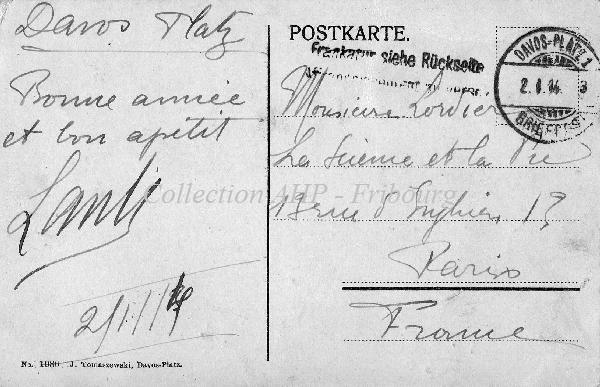 Davos Platz
Bonne année
et bon apétit
Lauli
2/I/14
No. 1080 J. Tomaszewski, Davos-Platz.
POSTKARTE.
Frankatur siehe Rückseite
DAVOS-PLATZ 1
2. I. 14. 3
BRIEFEXP.
Monsieur Cordier
La Science et la Vie
13 rue d'Enghien 13
Paris
France
Collection AHP - Fribourg